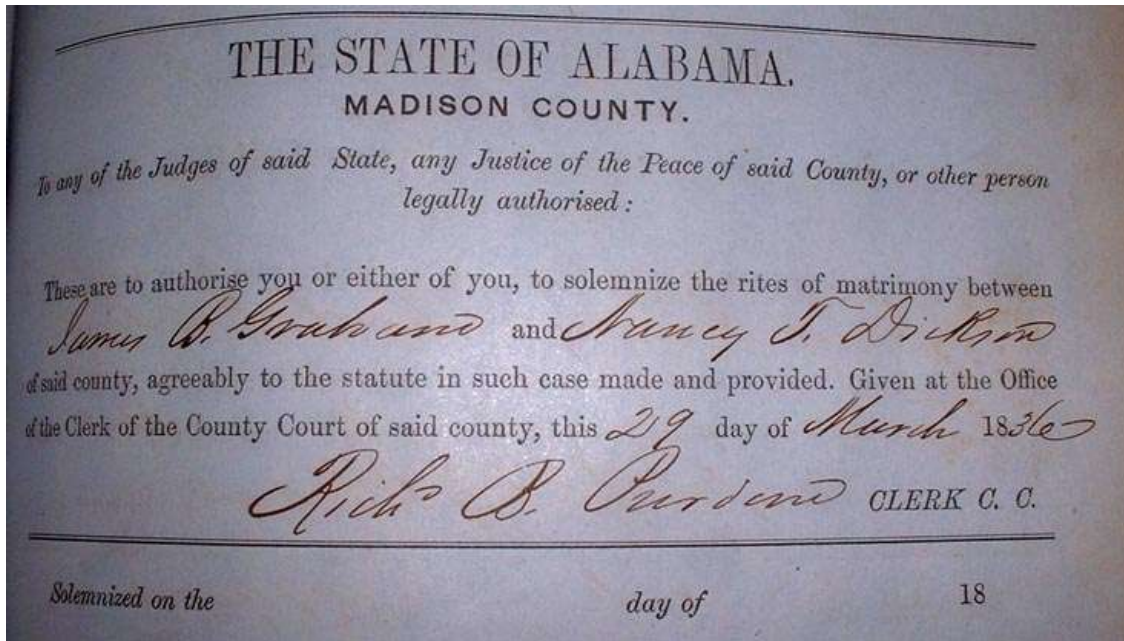 THE STATE OF ALABAMA.
MADISON COUNTY.
To any of the Judges of said State, any Justice of the Peace of said County, or other person
legally authorised :
These are to authorise you or either of you, to solemnize the rites of matrimony between
James B. Graham and Nancy T. Dickson
of said county, agreeably to the statute in such case made and provided. Given at the Office
of the Clerk of the County Court of said county, this 29 day of March 1836
Richd B. Purdom CLERK C. C.
Solemnized on the day of 18